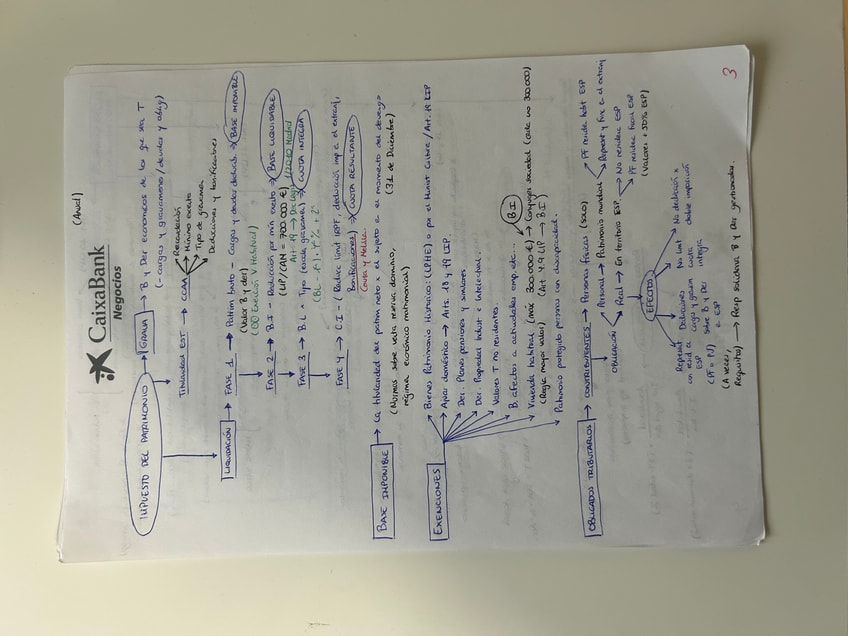 CaixaBank
Negocios
(Anual)
IMPUESTO DEL PATRIMONIO → GRAVA → B y Der económicos de los que sea T
(- cargas y gravámenes / deudas y oblig)
Titularidad EST → CCAA
Recaudación
Mínimo exento
Tipo de gravamen
Deducciones y bonificaciones
LIQUIDACIÓN → FASE 1 → Patrim bruto - Cargas y deudas deducib. → BASE IMPONIBLE
(Valor B y der)
(LOD Exención V. Habitual)
FASE 2 → B.I - Reducción por mín exento → BASE LIQUIDABLE
(LIP/CAN = 700.000 €)
Art. 19 → Der Leg 1/2010 Madrid
FASE 3 → B.L x Tipo (escala gravamen) → CUOTA INTEGRA
FASE 4 → C.I - (Reduc limit IRPF, deducción imp e el extranj,
Bonificaciones) → CUOTA RESULTANTE
Ceuta y Melilla
BASE IMPONIBLE → La titularidad del patrim neto x el sujeto e el momento del devengo
(Normas sobre venta reserva dominio, (31 de Diciembre)
régimen económico matrimonial)
EXENCIONES
Bienes Patrimonio Histórico: (LPHE) o por el Minist Cultura / Art. 19 LIP
Ajuar doméstico → Arts. 18 y 19 LIP.
Der. Planes pensiones y similares
Der Propiedad Indust e Intelectual.
Valores T no residentes.
B afectos a actividades emp. etc...
B I
Vivienda habitual (máx 300.000 €) → Cónyuges sociedad (cada uno 300.000)
(Regla mayor valor) (Art 4.9 LIP → B.I)
Patrimonio protegido personas con discapacidad.
OBLIGADOS TRIBUTARIOS → CONTRIBUYENTES → Personas físicas (SOLO)
OBLIGACIÓN
Personal → Patrimonio mundial
PF resida habit ESP
Represent y func e el extranj
Real → En territorio ESP
No residenc ESP
PF residec fiscal ESP
(Valores + 50% ESP)
EFECTOS
Represent
con resid e
ESP
(PF = PJ)
(A veces,
Requisito) → Resp solidaria B y Der gestionados.
Deducciones
cargas y gravám
sobre B y Der
e ESP
No limit
cuota
íntegra
No deducción x
doble imposición
3